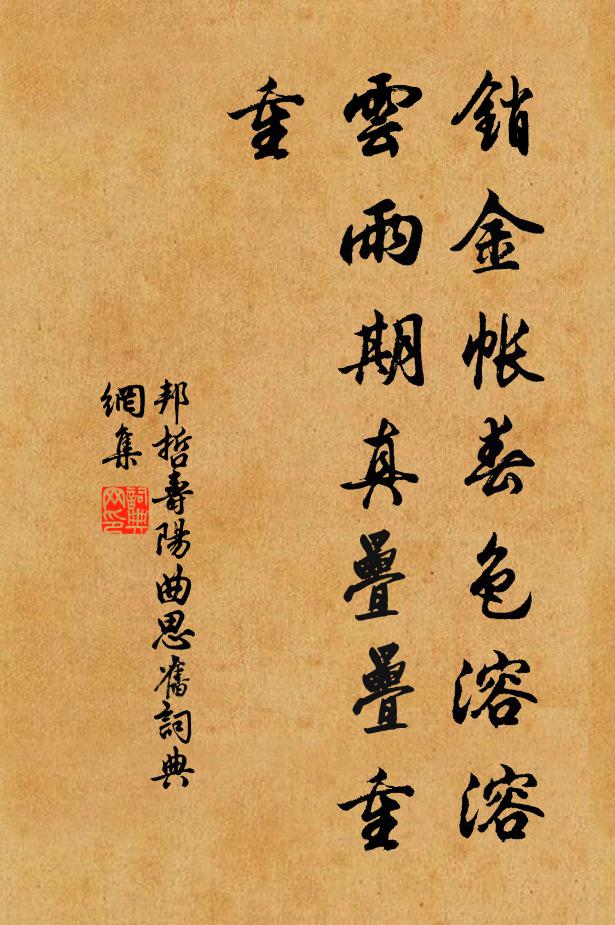 銷金帳春色溶溶
雲雨期真疊疊重
重
邦哲壽陽曲思舊詞典
網集
詞典
网印